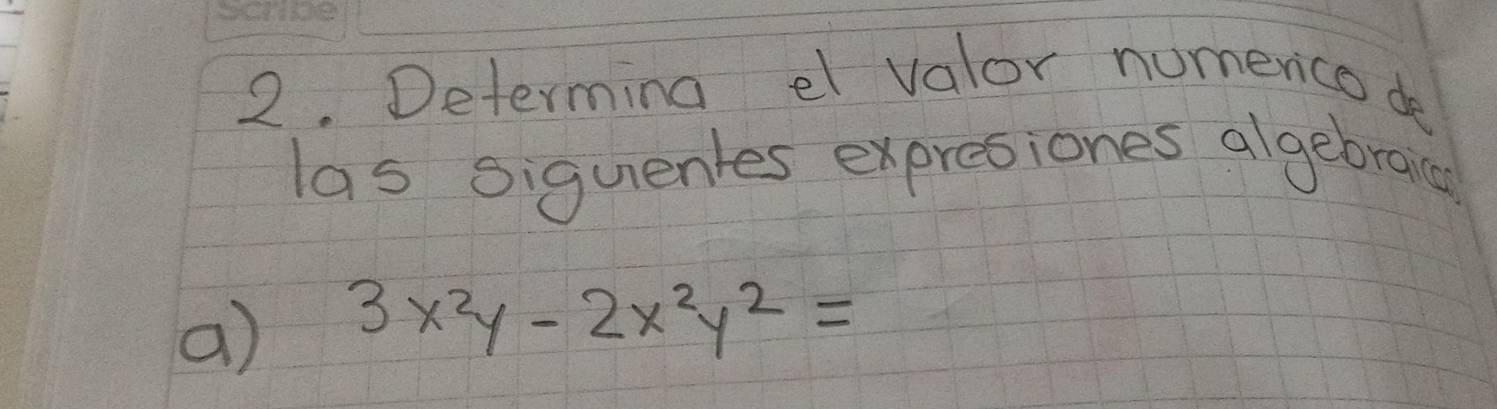 Scribe
2. Determina el valor numerico de
las siguientes expresiones algebraicas
a) 3x²y - 2x²y² =